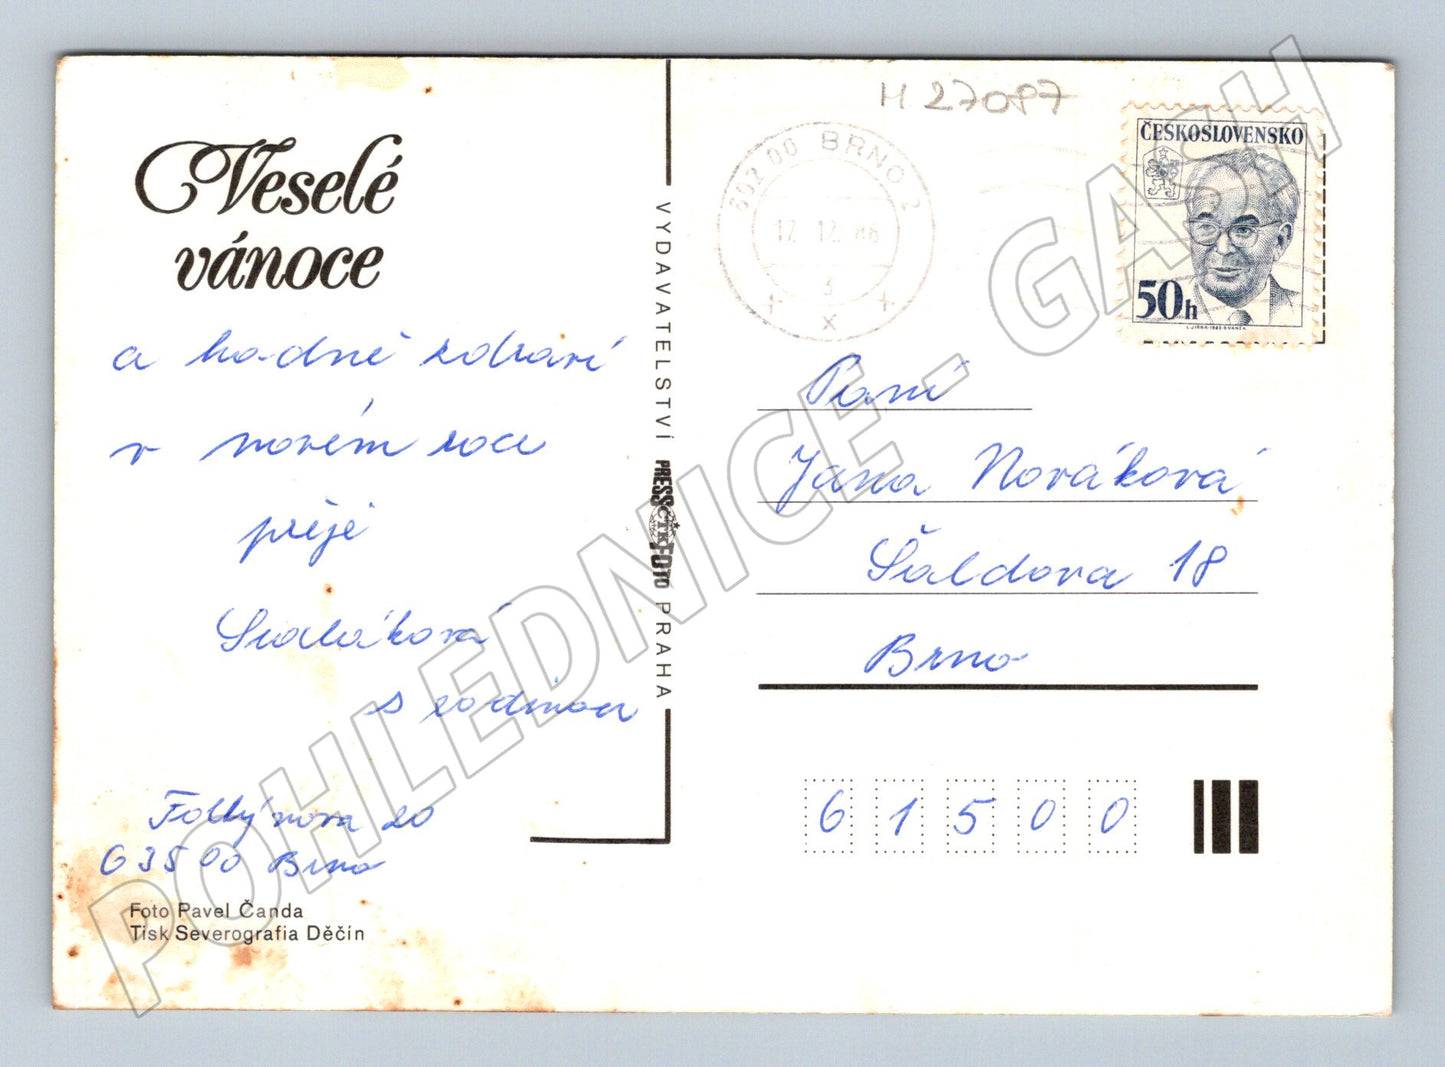 Veselé
vánoce
a hodně zdraví
v novém roce
přeje
Sedláková
s rodinou
Foltýnova 20
63500 Brno
Foto Pavel Čanda
Tisk Severografia Děčín
VYDAVATELSTVÍ PRESSFOTO PRAHA
ČTK
M 27087
602 00 BRNO 2
17.12.86
3
ČESKOSLOVENSKO
50h
Paní
Jana Nováková
Šaldova 18
Brno
61500
POHLEDNICE - GASH